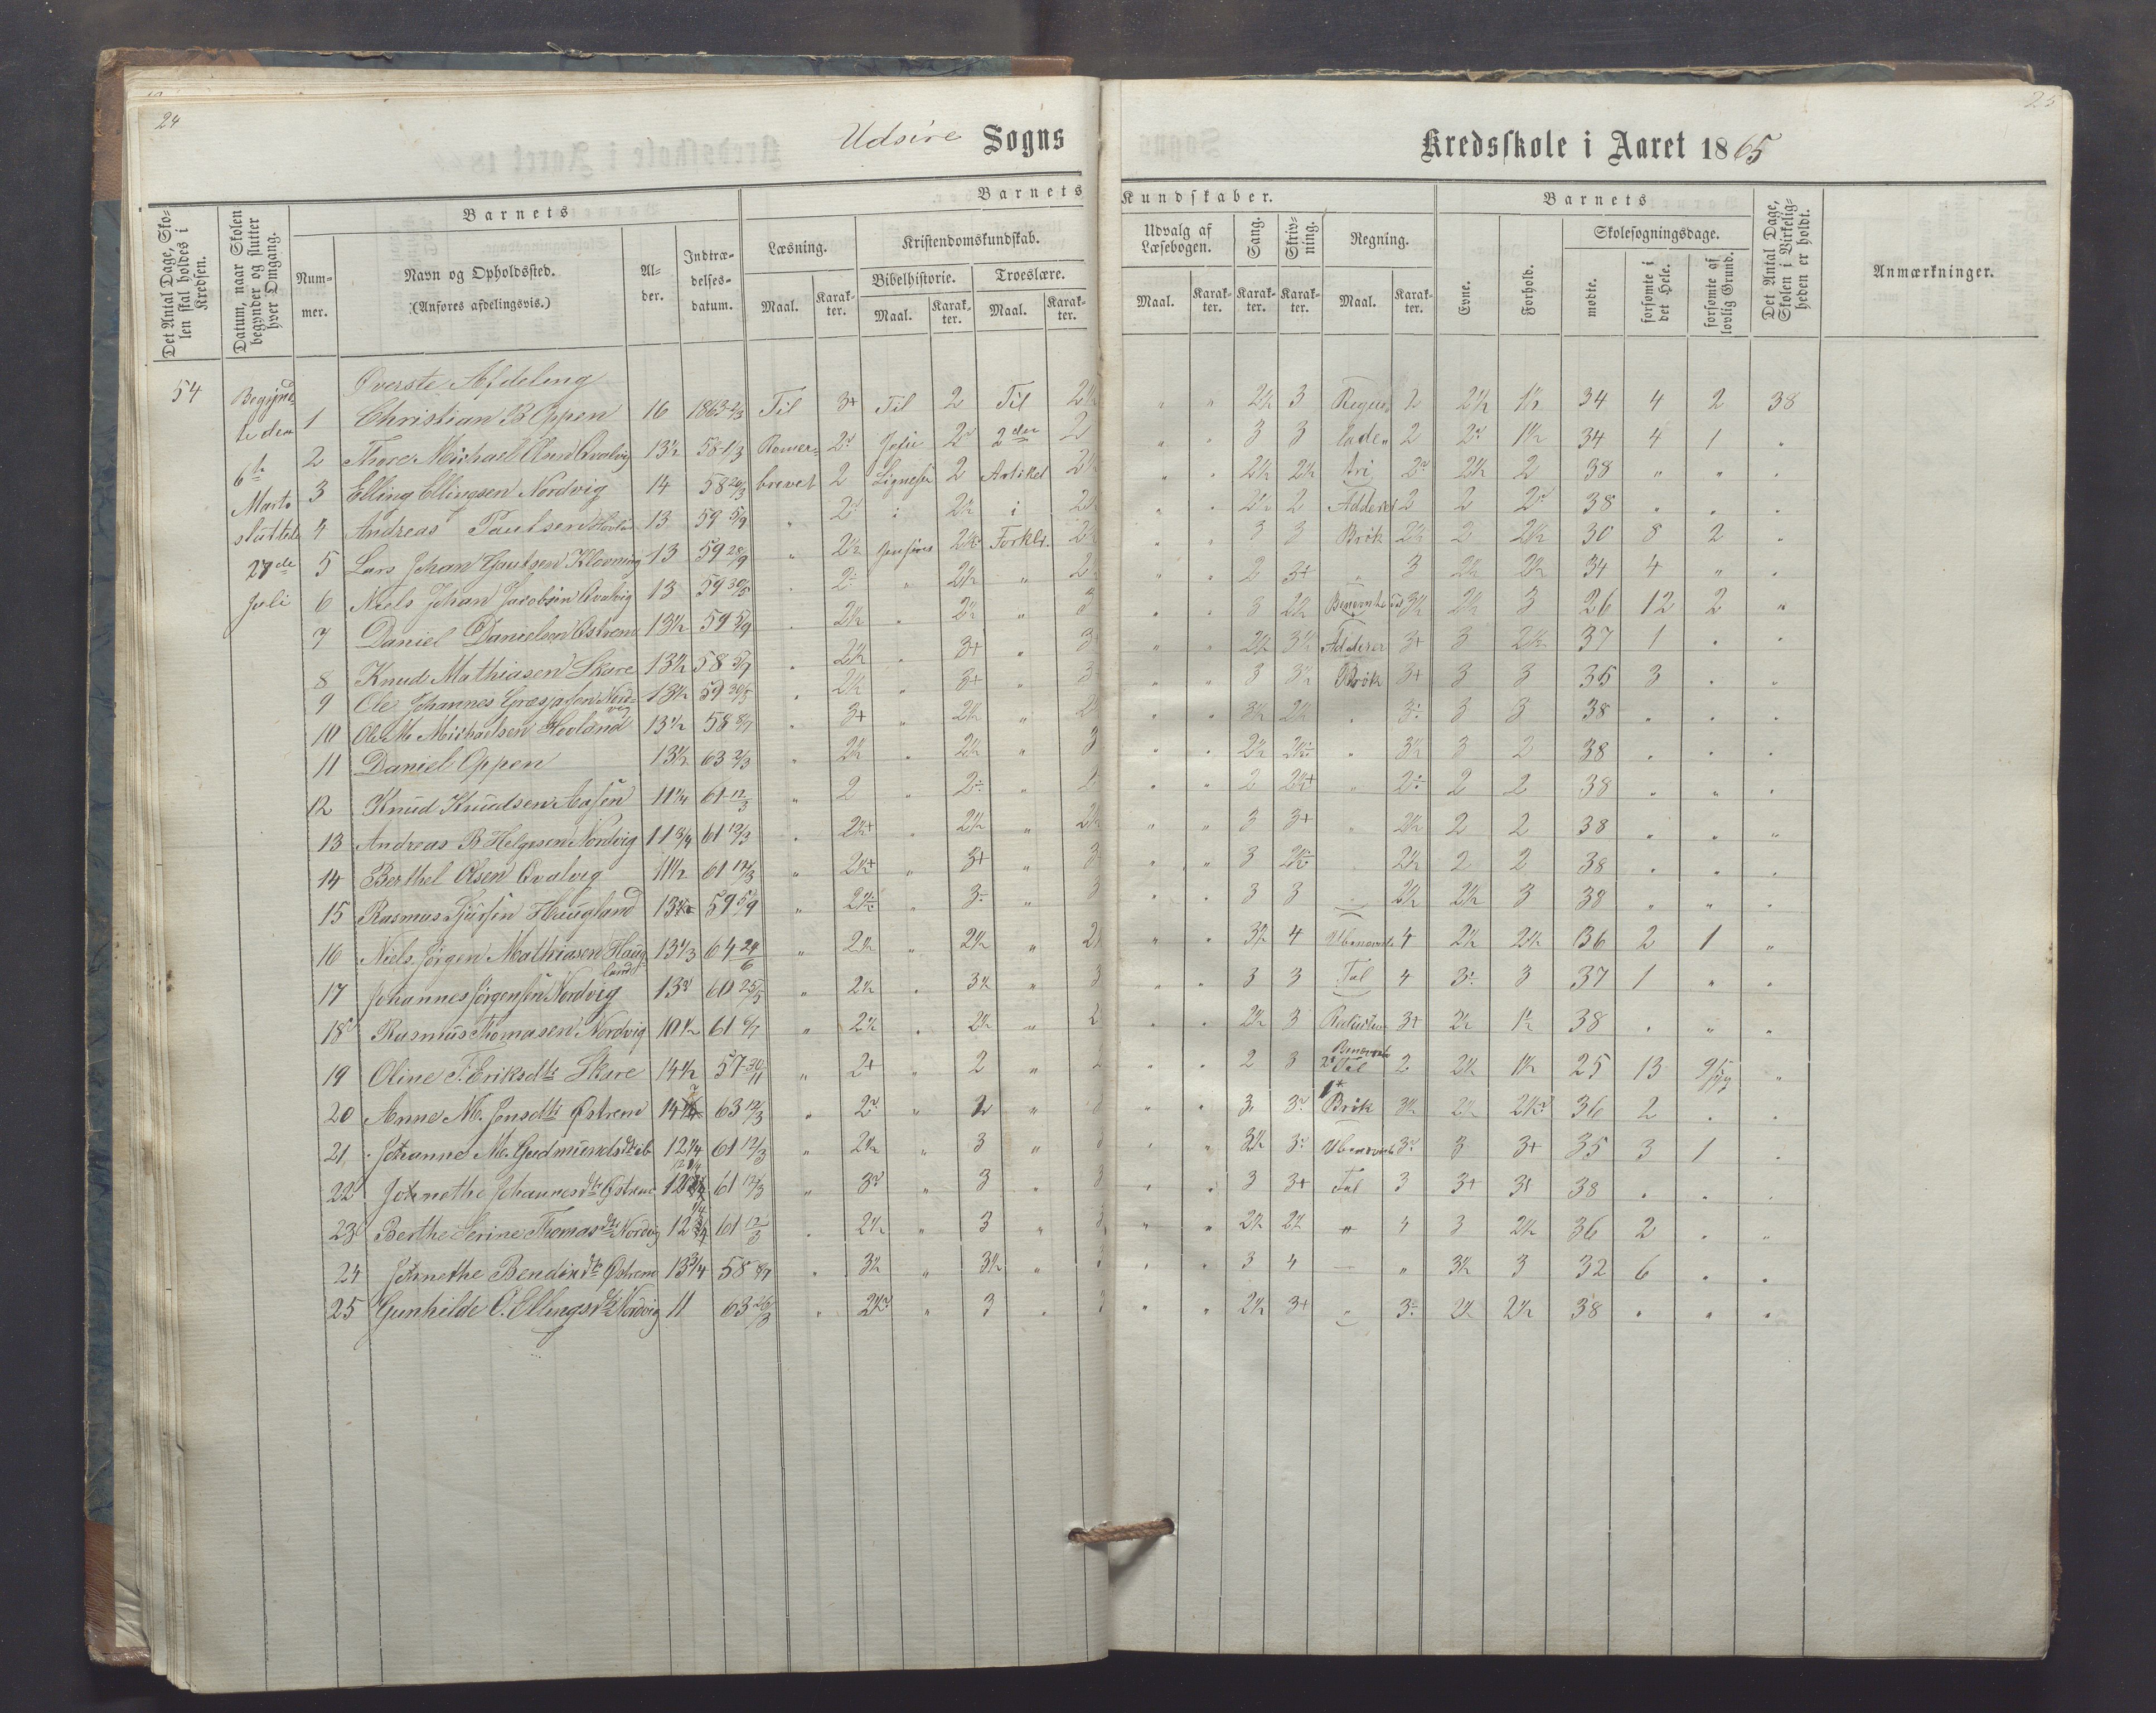 24
25
Udsire Sogns
Kredsskole i Aaret 1865
Det Antal Dage, Skolen skal holdes i Kredsen.
Datum, naar Skolen begynder og slutter hver Omgang.
Barnets
Nummer.
Navn og Opholdssted.
(Anføres afdelingsvis.)
Alder.
Indtrædelsesdatum.
Barnets Kundskaber.
Læsning.
Maal.
Karakter.
Kristendomskundskab.
Bibelhistorie.
Troeslære.
Maal.
Karakter.
Maal.
Karakter.
Udvalg af Læsebogen.
Maal.
Karakter.
Sang.
Karakter.
Skrivning.
Karakter.
Regning.
Maal.
Karakter.
Barnets
Evne.
Forhold.
Skolesøgningsdage.
mødte.
forsømte i det Hele.
forsømte af lovlig Grund.
Det Antal Dage, Skolen i Virkeligheden er holdt.
Anmærkninger.
54
Begynd-
te den
6te
Marts
sluttede
27de
Juli
Øverste Afdeling
1 Christian B Oppen 16 1863 2/3 Til 3+ Til 2 Til " " 2½ 3 2 2½ 1½ 34 4 2 38
2 Thore Michael Qvalvig 13½ 58 Romer- 2 2den 2 " " 3 3 2 1½ 34 4 1 "
3 Elling Ellingsen Nordvig 14 58 20/3 brevet 2 2 Artikel " " 2½ 2½ tri 2½ 2 38 " " "
4 Andreas Paulsen 13 59 5/9 " i 2½ i " " 2½ 2 Addere 2 2 38 " " "
5 Lars Johan Gautsen Klovning 13 59 28/9 " 2½ Forkl. " " 3 3 Brøk 2½ 2 2½ 30 8 2 "
6 Niels Johan Jacobsen Qvalvig 13 59 30/5 " " 2½ " " " 2 3+ " 3 2½ 2½ 34 4 " "
7 Daniel Danielsen Østrem 13½ 59 5/9 " 2½ " 2½ " 3 " " 3 2½ 3½ 2½ 3 26 12 2 "
8 Knud Mathiasen Skare 13½ 58 " 2½ " 3+ " 3 " " 2½ 3½ Adderer 3+ 3 2½ 37 1 " "
9 Ole Johannes Nord-
vig 13½ 59 30/5 " 2½ " 3+ " 3 " " 3 3½ Brøk 3+ 3 3 35 3 " "
10 Ole M Michaelsen Hovland 13½ 58 " 3+ " 2½ " " " 3½ 2½ " 3 3 38 " " "
11 Daniel Oppen 13½ 63 2/3 " 2½ " 2½ " 3 " " 2½ " 3½ 3 2 38 " " "
12 Knud Knudsen Aasen 11¼ 61 12/3 " 2 " " " " 2 " 2 2 38 " " "
13 Andreas B Helgesen Nordvig 11¾ 61 12/3 " 2½+ " 2½ " " " 3 3+ " 2½ 2 2 38 " " "
14 Berthel Olsen Qvalvig 11½ 61 12/3 " 2½+ " 3+ " 3 " " 3 2½ 2 2 38 " " "
15 Rasmus Haugland 59 5/9 " " " 3 " " 3 3 " 2½ 2½ 3 38 " " "
16 Niels Jörgen Mathiasen Haug-
land 13⅓ 64 24/6 " 2½ " 2½ " " " 3½ 4 Ubenevnte 4 2½ 2½ 36 2 1 "
17 Johannes Jörgensen Nordvig 60 25/5 " 2½ " 3½ " 3 " " 3 3 Tal 4 3 37 1 " "
18 Rasmus Thomasen Nordvig 10½ 61 " 2½ " 2½ " " " 2½ 3 3+ 2½ 1½ 38 " " "
19 Oline T. Eriksdtr Skare 14½ 57 30/11 " 2+ " 2 " " " 2 3 Benevnte Tal 2 2½ 1½ 25 13 "
20 Anne M. Jensdtr Østrem 63 12/3 " " 2 " " " 3 Brøk 3½ 2½ 36 2 " "
21 Johanne M. Gudmundsdtr ib 12¼ 61 12/3 " 2½ " 3 " " " 3½ Ubenevnte 3 3+ 35 3 1 "
22 Johnethe Johannesdtr Østrem 61 12/3 " " 3 " 3 " " 3 3+ Tal 3 3+ 38 " " "
23 Berthe Serine Thomasdtr Nordvig 61 12/3 " 2½ " 3 " 3 " " 2½ 2½ " 4 3 2½ 36 2 " "
24 Johnethe Bendixdtr Østrem 13¾ 58 " 3½ " 3½ " " " 3 4 — " 3½ 3 32 6 " "
25 Gunhilde O. Ellingsdtr Nordvig 11 63 26/3 " " 3 " 3 " " 2½ 3+ " 2½ 2½ 38 " " "